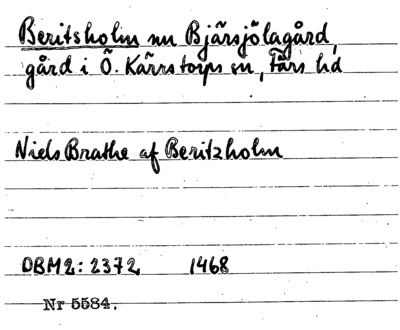 Beritsholm nu Bjärsjölagård,
gård i Ö. Kärrstorps sn, Färs hd
Niels Brathe af Beritzholm
DBM2: 2372 1468
Nr 5584.